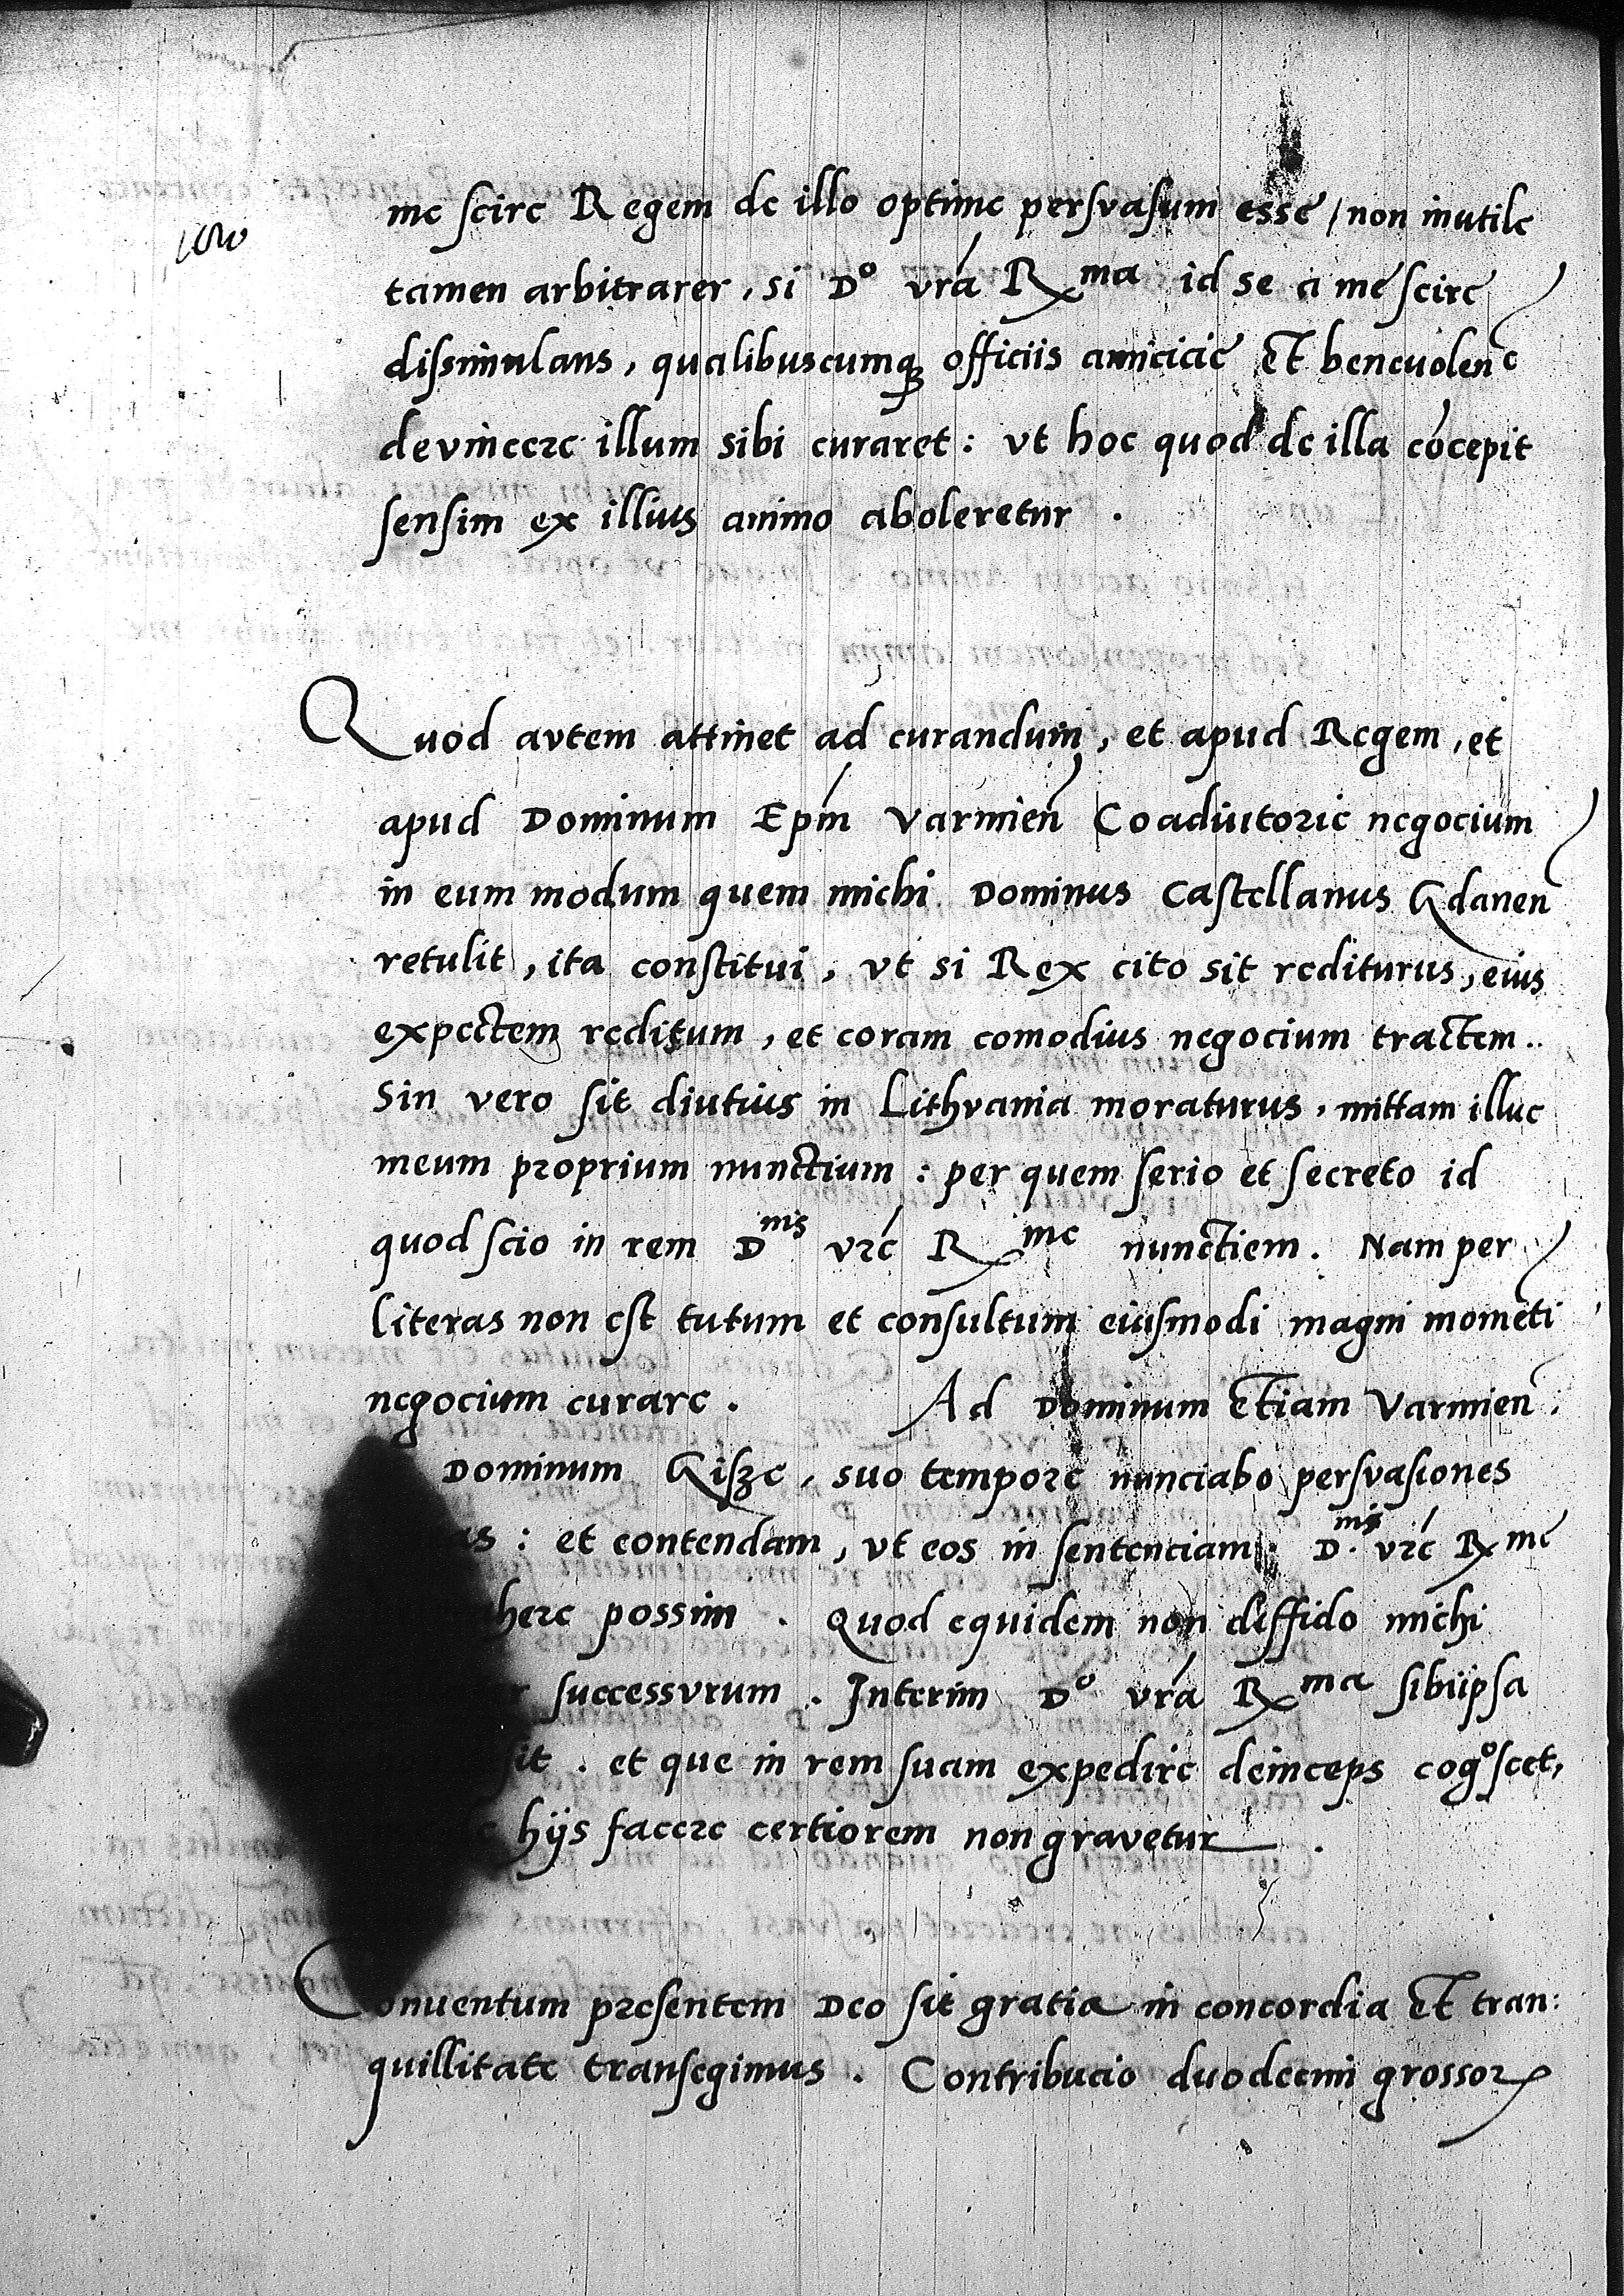 me scire Regem de illo optime persvasum esse / non inutile
tamen arbitrarer, si D⁰ vrá Rᵐᵃ id se a me scire
dissimulans, qualibuscumqꝫ officiis amicicie Et benevolenᶜ
devincere illum sibi curaret : vt hoc quod de illa cōcepit
sensim ex illius animo aboleretur .
Quod avtem attinet ad curandum, et apud Regem, et
apud Dominum Ep̄m Varmieñ Coadiutorie negocium
in eum modum quem michi Dominus Castellanus Gdaneñ
retulit, ita constitui, vt si Rex cito sit rediturus, eius
expectem reditum, et coram comodius negocium tractem..
Sin vero sit diutius in Lithvania moraturus, mittam illuc
meum proprium nunctium : per quem serio et secreto id
quod scio in rem Dⁿⁱˢ vrē Rᵐᵉ nunctiem. Nam per
literas non est tutum et consultum eiusmodi magni momēti
negocium curare. Ad Dominum Etiam Varmieñ:
Dominum Gisze, suo tempore nunciabo persvasiones
as : et contendam, vt eos in sentenciam D.ⁿⁱˢ vrē Rᵐᵉ
here possim . Quod equidem non diffido michi
r successvrum . Interim D⁰ vrá Rᵐᵃ sibiipsa
sit . et que in rem suam expedire deinceps cog⁰scet,
hijs facere certiorem non gravetur .
Conuentum presentem Deo sit gratia in concordia Et tran:
quillitate transegimus . Contribucio duodecim grossoꝝ